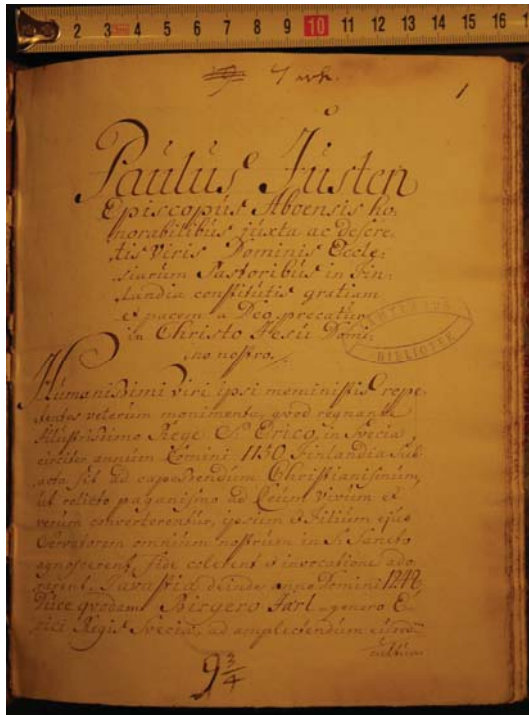 2 3 4 5 6 7 8 9 10 11 12 13 14 15 16
1
Paulus Justen
Episcopus Aboensis ho-
norabilibus juxta ac discre-
tis Viris Dominis Eccle-
siarum Pastoribus in Fin-
landia constitutis gratiam
et pacem a Deo precatur
in Christo Jesu Domi-
no nostro.
Humanissimi Viri ipsi meministis repe-
tentes veterum monimenta, qvod regnante
Illustrissimo Rege S. Erico, in Svecia
circiter annum Domini 1150 Finlandia sub
acta sit ad capessendum Christianismum,
ut relicto paganismo ad Deum vivum et
verum converterentur, ipsum et Filium ejus
Servatorem omnium nostrum in S. Sancto
agnoscerent, fide colerent et invocatione ado
rarent. Tavastia deinde anno Domini
Duce qvodam Birgero Jarl genero E-
rici Regis Sveciæ, ad amplectendum
cultum
BIBLIOTEK
9 3/4